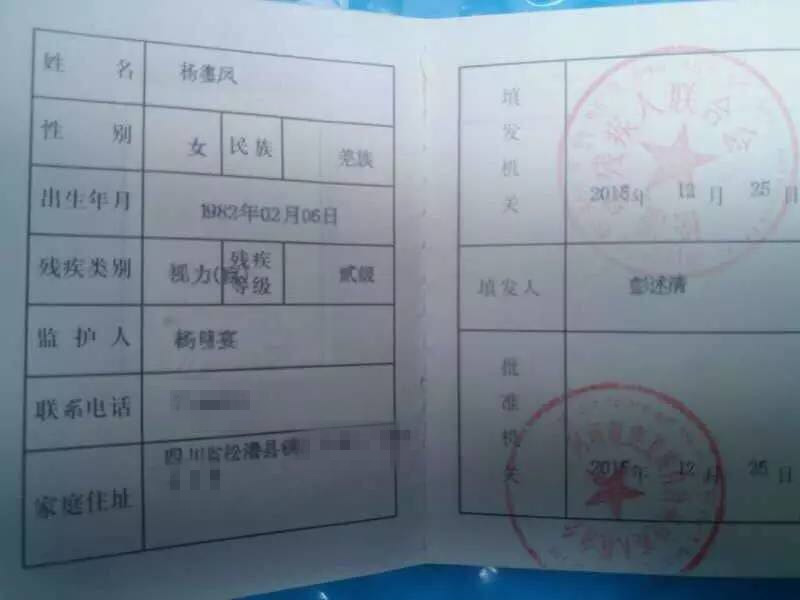 姓名 杨德凤
性别 女 民族 羌族
出生年月 1982年02月06日
残疾类别 视力(盲) 残疾等级 贰级
监护人 杨
联系电话
家庭住址 四川省松潘县镇
填发机关 残疾人联合会
2015年 12月 25日
填发人 彭述清
批准机关
2015年 12月 25日